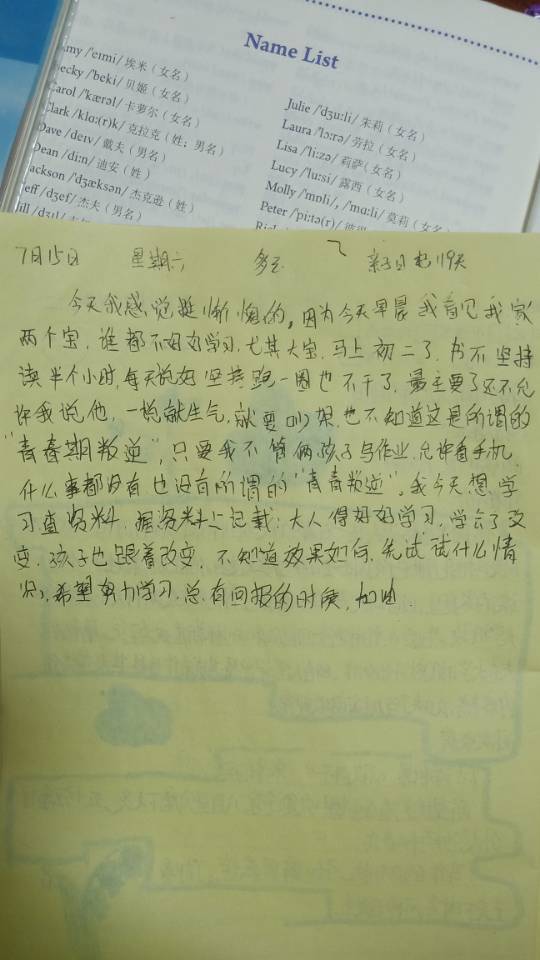 Name List
my /'eɪmi/ 埃米（女名）
ecky /'beki/ 贝姬（女名）
arol /'kærəl/ 卡萝尔（女名）
lark /klɑ:(r)k/ 克拉克（姓；男名）
Dave /deɪv/ 戴夫（男名）
Dean /di:n/ 迪安（姓）
ackson /'dʒæksən/ 杰克逊（姓）
eff /dʒef/ 杰夫（男名）
ill /dʒɪl/
Julie /'dʒu:li/ 朱莉（女名）
Laura /'lɔ:rə/ 劳拉（女名）
Lisa /'li:zə/ 莉萨（女名）
Lucy /'lu:si/ 露西（女名）
Molly /'mɒli/, /'mɑ:li/ 莫莉（女名）
Peter /'pi:tə(r)/
7月15日 星期六 多云
今天我感觉挺惭愧的，因为今天早晨我看见我家
两个宝，谁都不好好学习，尤其大宝，马上初二了，书不坚持
读半个小时，每天说好坚持跑一圈也不干了，最主要了还不允
许我说他，一说就生气，就要吵架，也不知道这是所谓的
“青春期叛逆”，只要我不管俩孩子写作业，允许看手机
什么事都没有也没有所谓的“青春叛逆”。我今天想学
习查资料，据资料上记载：大人得好好学习，学会了改
变，孩子也跟着改变，不知道效果如何，先试试什么情
况，希望努力学习，总有回报的时候，加油.